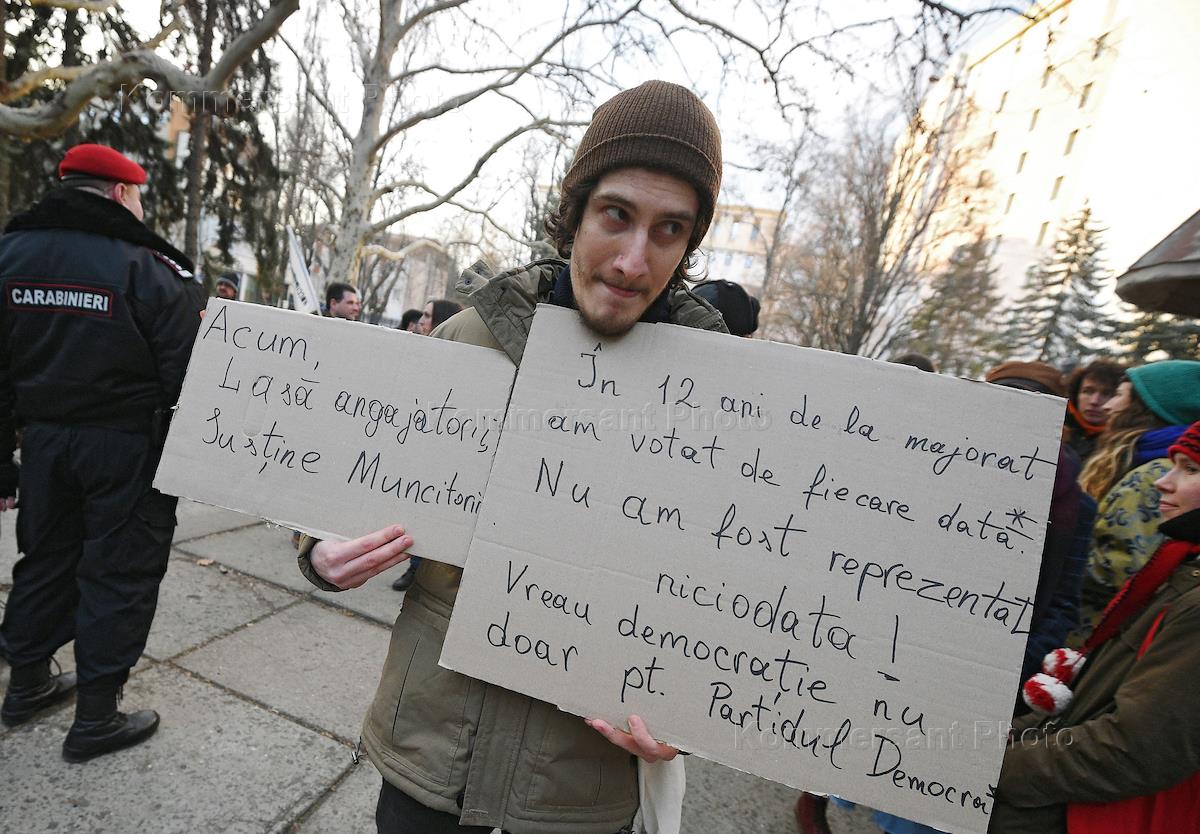 CARABINIERI
Acum,
Lasă angajatorii,
Susține Muncitorii
În 12 ani de la majorat
am votat de fiecare dată.*
Nu am fost reprezentat
niciodata!
Vreau democrație nu
doar pt. Partidul Democrat
Kommersant Photo
Kommersant Photo
Kommersant Photo